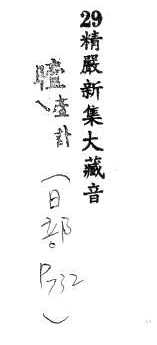 29精嚴新集大藏音
曀壹計
(日部P732)